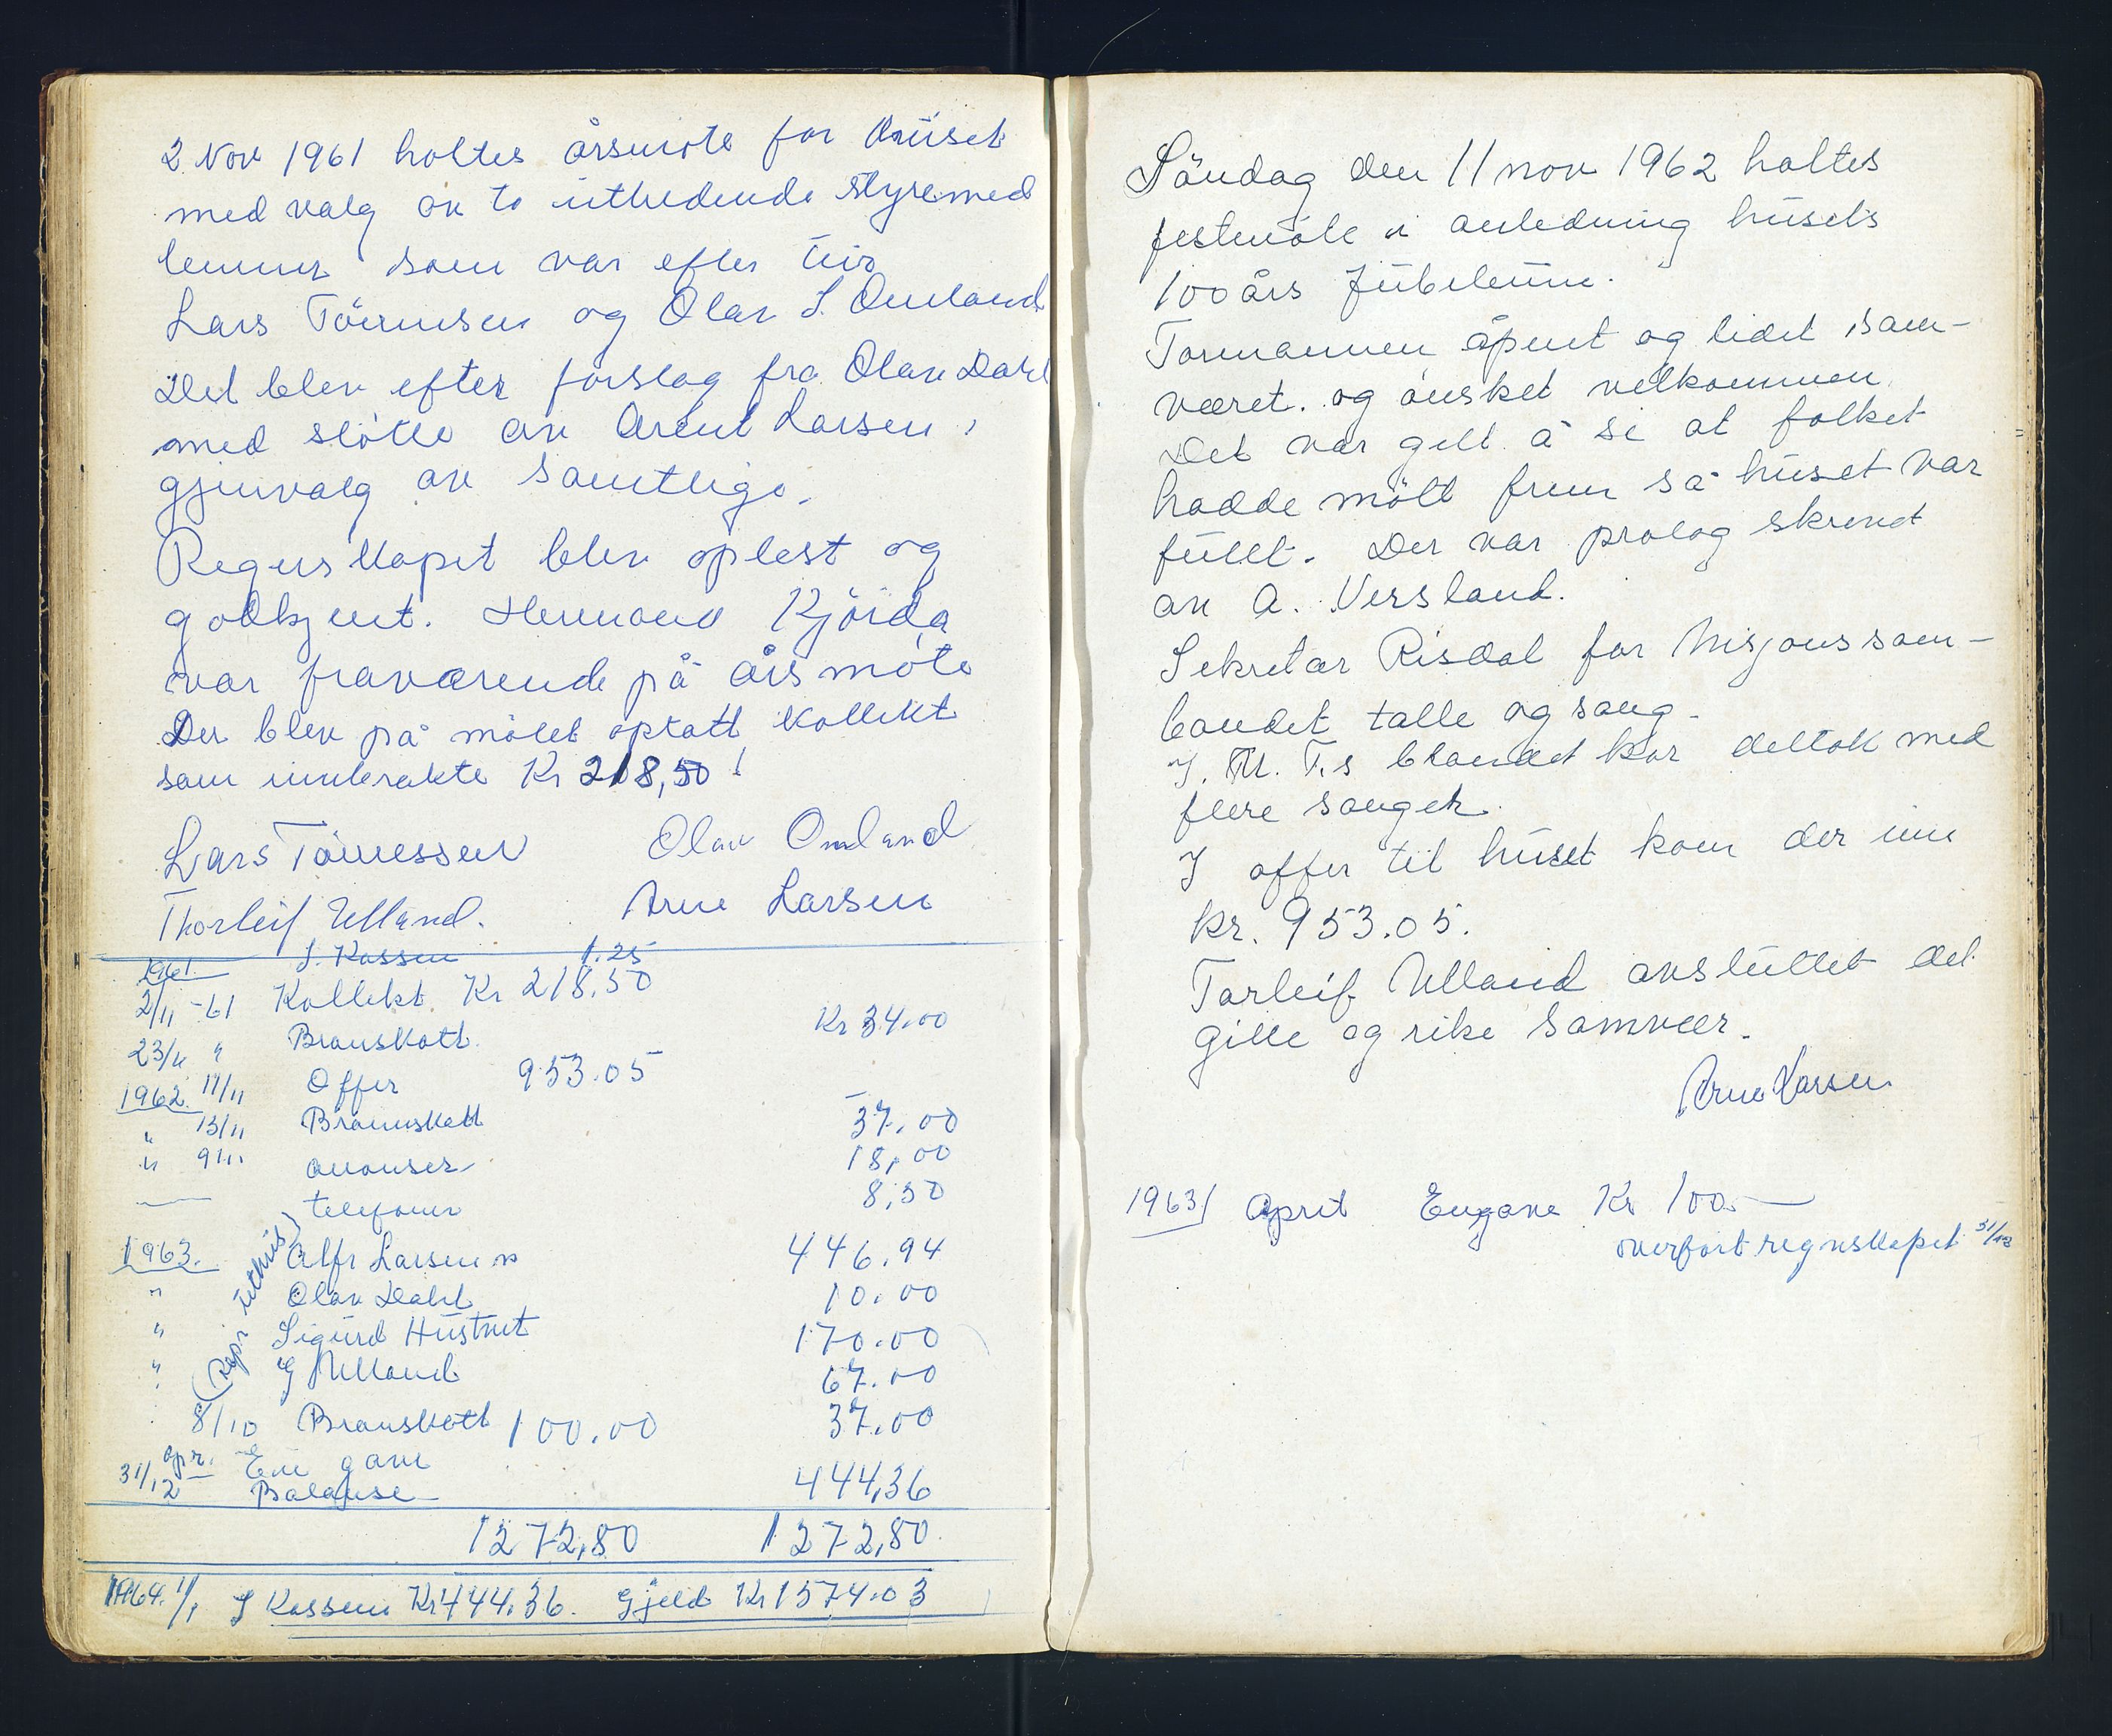 2 Nov 1961 holtes årsmöte for huset
med valg av to uttredende styremed
lemmer som var efter tur
Lars Tönnesen og Olav S. Omland
Det blev efter forslag fra Olav Dahl
med stötte av Arent Larsen,
gjenvalg av samtlige.
Regnskapet blev oplest og
godkjent. Hermand Kjörda
var fraværende på årsmöte
Der blev på mötet optatt kollekt
som innbrakte Kr 218,50!
Lars Tönnessen Olav Omland
Thorleif Ulland. Arne Larsen
1961. I. Kassen 1.25
2/11 -61 Kollekt Kr 218.50
23/11 " Branskatt Kr 34.00
1962. 11/11 Offer 953.05
" 13/11 Brannskatt 37.00
" 9/11 anonser 18,00
— telefoner 8,50
1963. Alfr Larsen 446.94
" Olav Dahl 10.00
" Sigurd Hustveit 170.00
" G Ulland 67.00
(Rep. uthus)
8/10 Branskatt 100.00 37.00
apr. En gave
31/12 Balanse 444,36
1272,80 1272,80
1964. 1/1 I Kassen Kr 444.36. Gjeld Kr 1574.03
Söndag den 11 nov 1962 holtes
festmöte i anledning husets
100 års Jubileum.
Formannen åpnet og ledet sam-
været. og önsket velkommen.
Det var gilt å se at folket
hadde mött frem så huset var
fullt. Der var prolog skrevet
av A. Versland.
Sekretær Risdal for Misjonssam-
bandet talte og sang.
I. M. F.s blandet kor deltok med
flere sanger.
I offer til huset kom der inn
kr. 953.05.
Torleif Ulland avsluttet det
gille og rike samvær.
Arne Larsen
1963/ April En gave Kr 100.—
overfört regnskapet 31/12